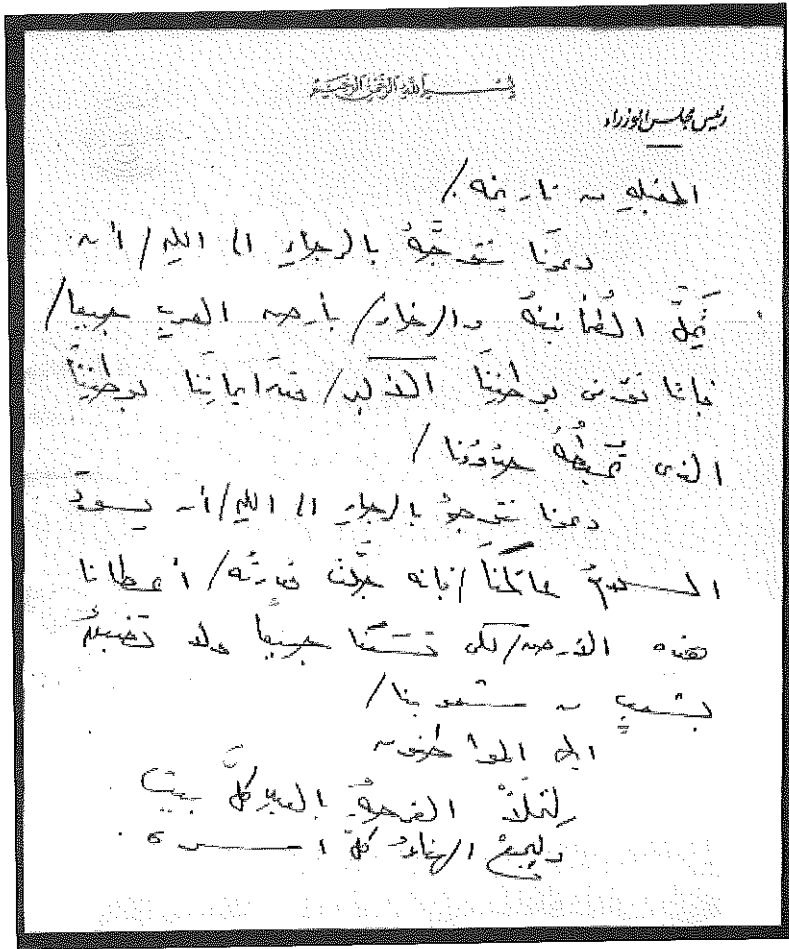 بسم الله الرحمن الرحيم
رئيس مجلس الوزراء
المقبلة من تاريخه /
دعونا نتوجَّهُ بالرجاءِ الى اللهِ / أن
تَحِلَّ الطُمأنينةُ والرخاء / بأرض العربِ جميعا /
فإننا نؤمن بوطنِنَا الأكبر / قدرَ ايمانِنَا بوطنِنَا
الذى تُحيطُهُ حدودُنا /
دعونا نتوجهُ بالرجاءِ الى اللهِ / أن يسودَ
السلامُ عالمَنَا / فإنه جلَّت قدرتُه / أعطانا
هذه الأرض / لكى تسَعَنا جميعاً ولا تضيقُ
بشعبٍ من شعوبنا /
ايها المواطنون
لِتملأْ الفرحةُ بالعيدِ كلَّ بيت
وليجمعْ الهناءُ كلَّ أسرة